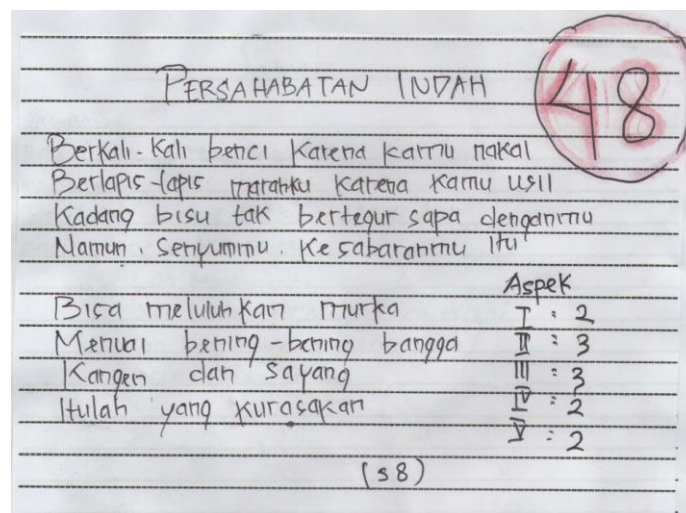 PERSAHABATAN INDAH
48
Berkali-kali benci karena kamu nakal
Berlapis-lapis marahku karena kamu usil
Kadang bisu tak bertegur sapa denganmu
Namun, senyummu, kesabaranmu itu
Bisa meluluhkan murka
Menuai bening-bening bangga
Kangen dan sayang
Itulah yang kurasakan
Aspek
I : 2
II : 3
III : 3
IV : 2
V : 2
(S8)